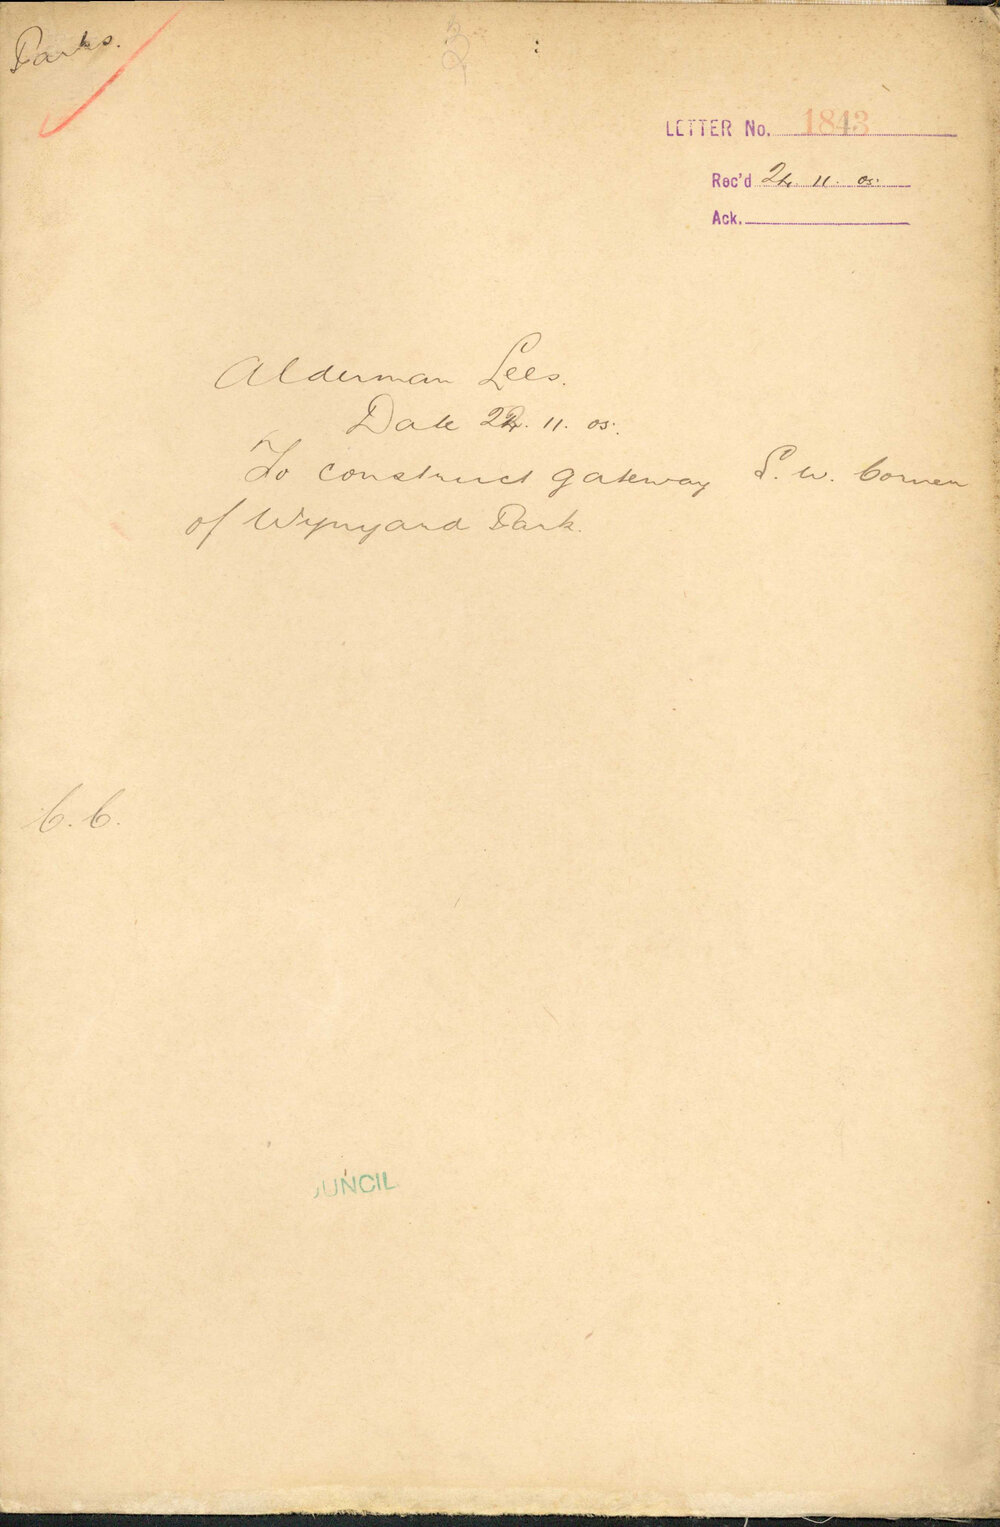 Parks.
LETTER No. 1843
Rec'd 24. 11. 05.
Ack.
Alderman Lees.
Date 24. 11. 05.
To construct gateway S. W. Corner
of Wynyard Park.
C. C.
UNCIL